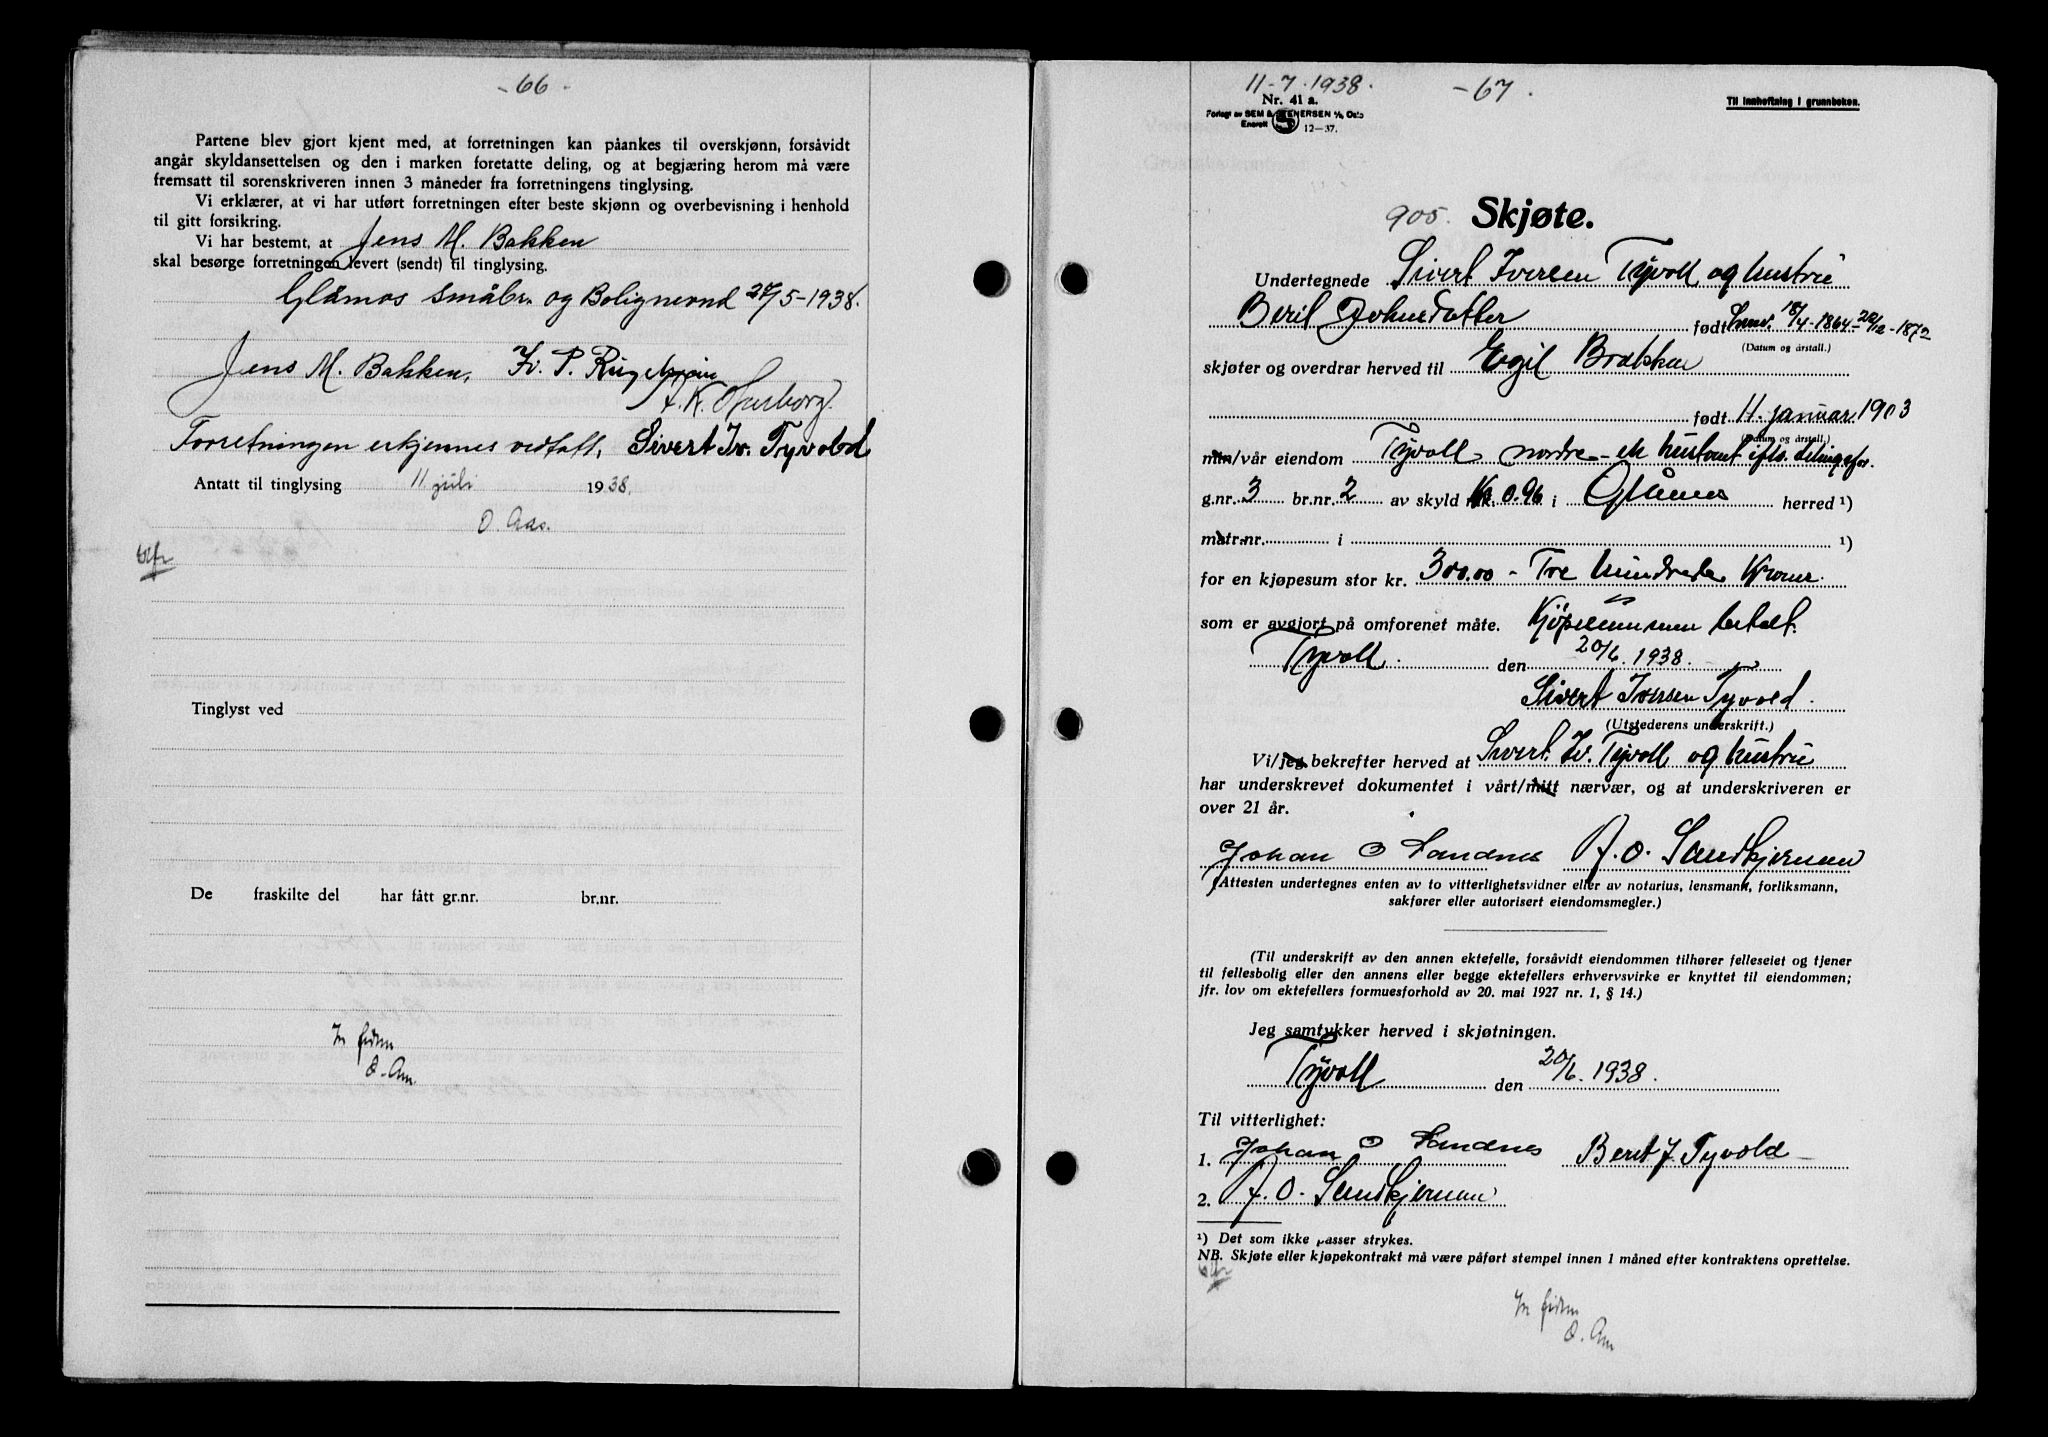 - 66 -
Partene blev gjort kjent med, at forretningen kan påankes til overskjønn, forsåvidt
angår skyldansettelsen og den i marken foretatte deling, og at begjæring herom må være
fremsatt til sorenskriveren innen 3 måneder fra forretningens tinglysing.
Vi erklærer, at vi har utført forretningen efter beste skjønn og overbevisning i henhold
til gitt forsikring.
Vi har bestemt, at Jens M. Bakken
skal besørge forretningen levert (sendt) til tinglysing.
Glåmos småbr. og Bolignevnd 24/5-1938.
Jens M. Bakken, Iv. P.
Forretningen erkjennes vedtatt, Sivert Iv. Tyvold
Antatt til tinglysing 11 juli 1938.
O. Aas.
Tinglyst ved
De fraskilte del har fått gr.nr. br.nr.
In fidem
O. Aas
11-7-1938. - 67.
Nr. 41 a. Til innheftning i grunnboken.
Forlagt av SEM & STENERSEN A/S, Oslo
Enerett S 12-37.
905. Skjøte.
Undertegnede Sivert Iversen Tyvoll og hustru
Berit Johnsdatter født henv. 18/4-1864-20/12-1872
(Datum og årstall.)
skjøter og overdrar herved til Egil Brakken
født 11. januar 1903
(Datum og årstall.)
min/vår eiendom Tyvoll nordre - en hustomt ifls. delingsfor.
g.nr. 3 br.nr. 2 av skyld mk. 0.96 i Glåmos herred ¹)
matr.nr. i ¹)
for en kjøpesum stor kr. 300.00 - Tre hundrede Kroner
som er avgjort på omforenet måte. Kjøpesummen betalt.
Tyvoll. den 20/6. 1938.
Sivert Iversen Tyvold.
(Utstederens underskrift.)
Vi/jeg bekrefter herved at Sivert Iv. Tyvoll og hustru
har underskrevet dokumentet i vårt/mitt nærvær, og at underskriveren er
over 21 år.
Johan O Sandnes A. O. Sandkjernan
(Attesten undertegnes enten av to vitterlighetsvidner eller av notarius, lensmann, forliksmann,
sakfører eller autorisert eiendomsmegler.)
(Til underskrift av den annen ektefelle, forsåvidt eiendommen tilhører felleseiet og tjener
til fellesbolig eller den annens eller begge ektefellers erhvervsvirke er knyttet til eiendommen;
jfr. lov om ektefellers formuesforhold av 20. mai 1927 nr. 1, § 14.)
Jeg samtykker herved i skjøtningen.
Tyvoll den 20/6. 1938.
Til vitterlighet:
1. Johan O Sandnes Berit J. Tyvold
2. A. O. Sandkjernan
¹) Det som ikke passer strykes.
NB. Skjøte eller kjøpekontrakt må være påført stempel innen 1 måned efter kontraktens oprettelse.
In fidem
O. Aas